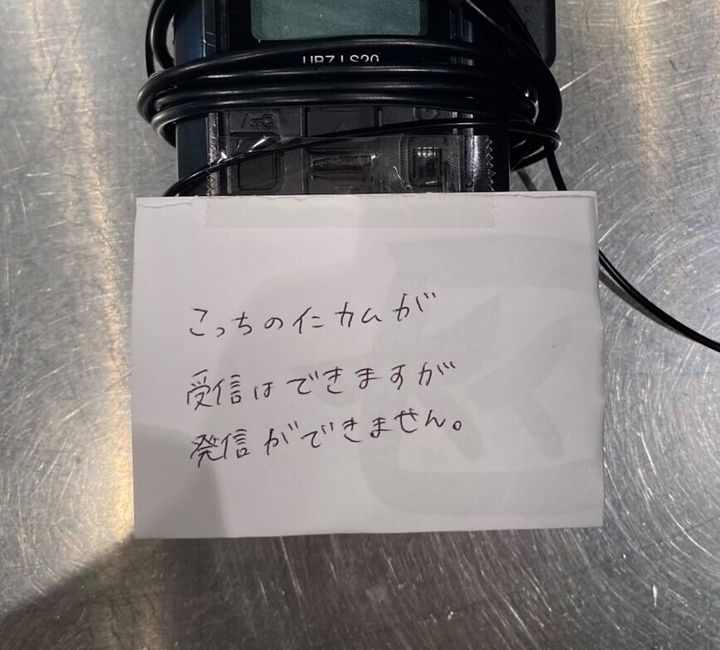 UBZ-LS20
こっちのインカムが
受信はできますが
発信ができません。